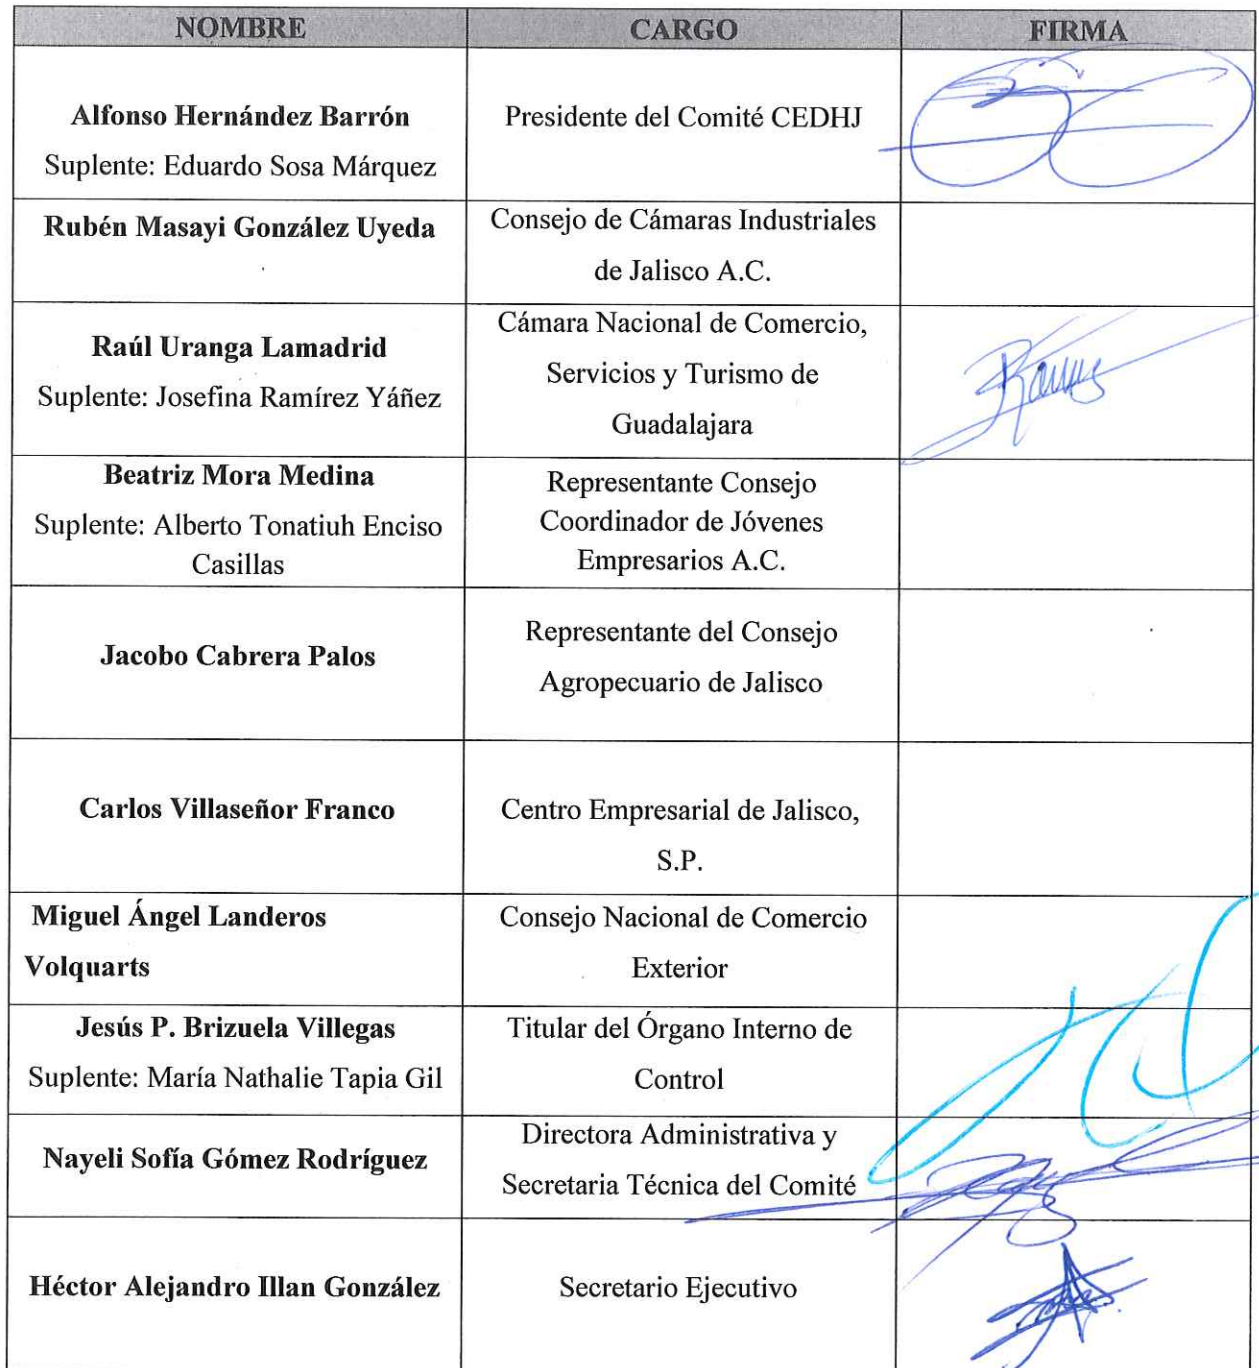 NOMBRE CARGO FIRMA
Alfonso Hernández Barrón
Suplente: Eduardo Sosa Márquez
Presidente del Comité CEDHJ
Rubén Masayi González Uyeda
Consejo de Cámaras Industriales
de Jalisco A.C.
Raúl Uranga Lamadrid
Suplente: Josefina Ramírez Yáñez
Cámara Nacional de Comercio,
Servicios y Turismo de
Guadalajara
Beatriz Mora Medina
Suplente: Alberto Tonatiuh Enciso
Casillas
Representante Consejo
Coordinador de Jóvenes
Empresarios A.C.
Jacobo Cabrera Palos
Representante del Consejo
Agropecuario de Jalisco
Carlos Villaseñor Franco
Centro Empresarial de Jalisco,
S.P.
Miguel Ángel Landeros
Volquarts
Consejo Nacional de Comercio
Exterior
Jesús P. Brizuela Villegas
Suplente: María Nathalie Tapia Gil
Titular del Órgano Interno de
Control
Nayeli Sofía Gómez Rodríguez
Directora Administrativa y
Secretaria Técnica del Comité
Héctor Alejandro Illan González
Secretario Ejecutivo